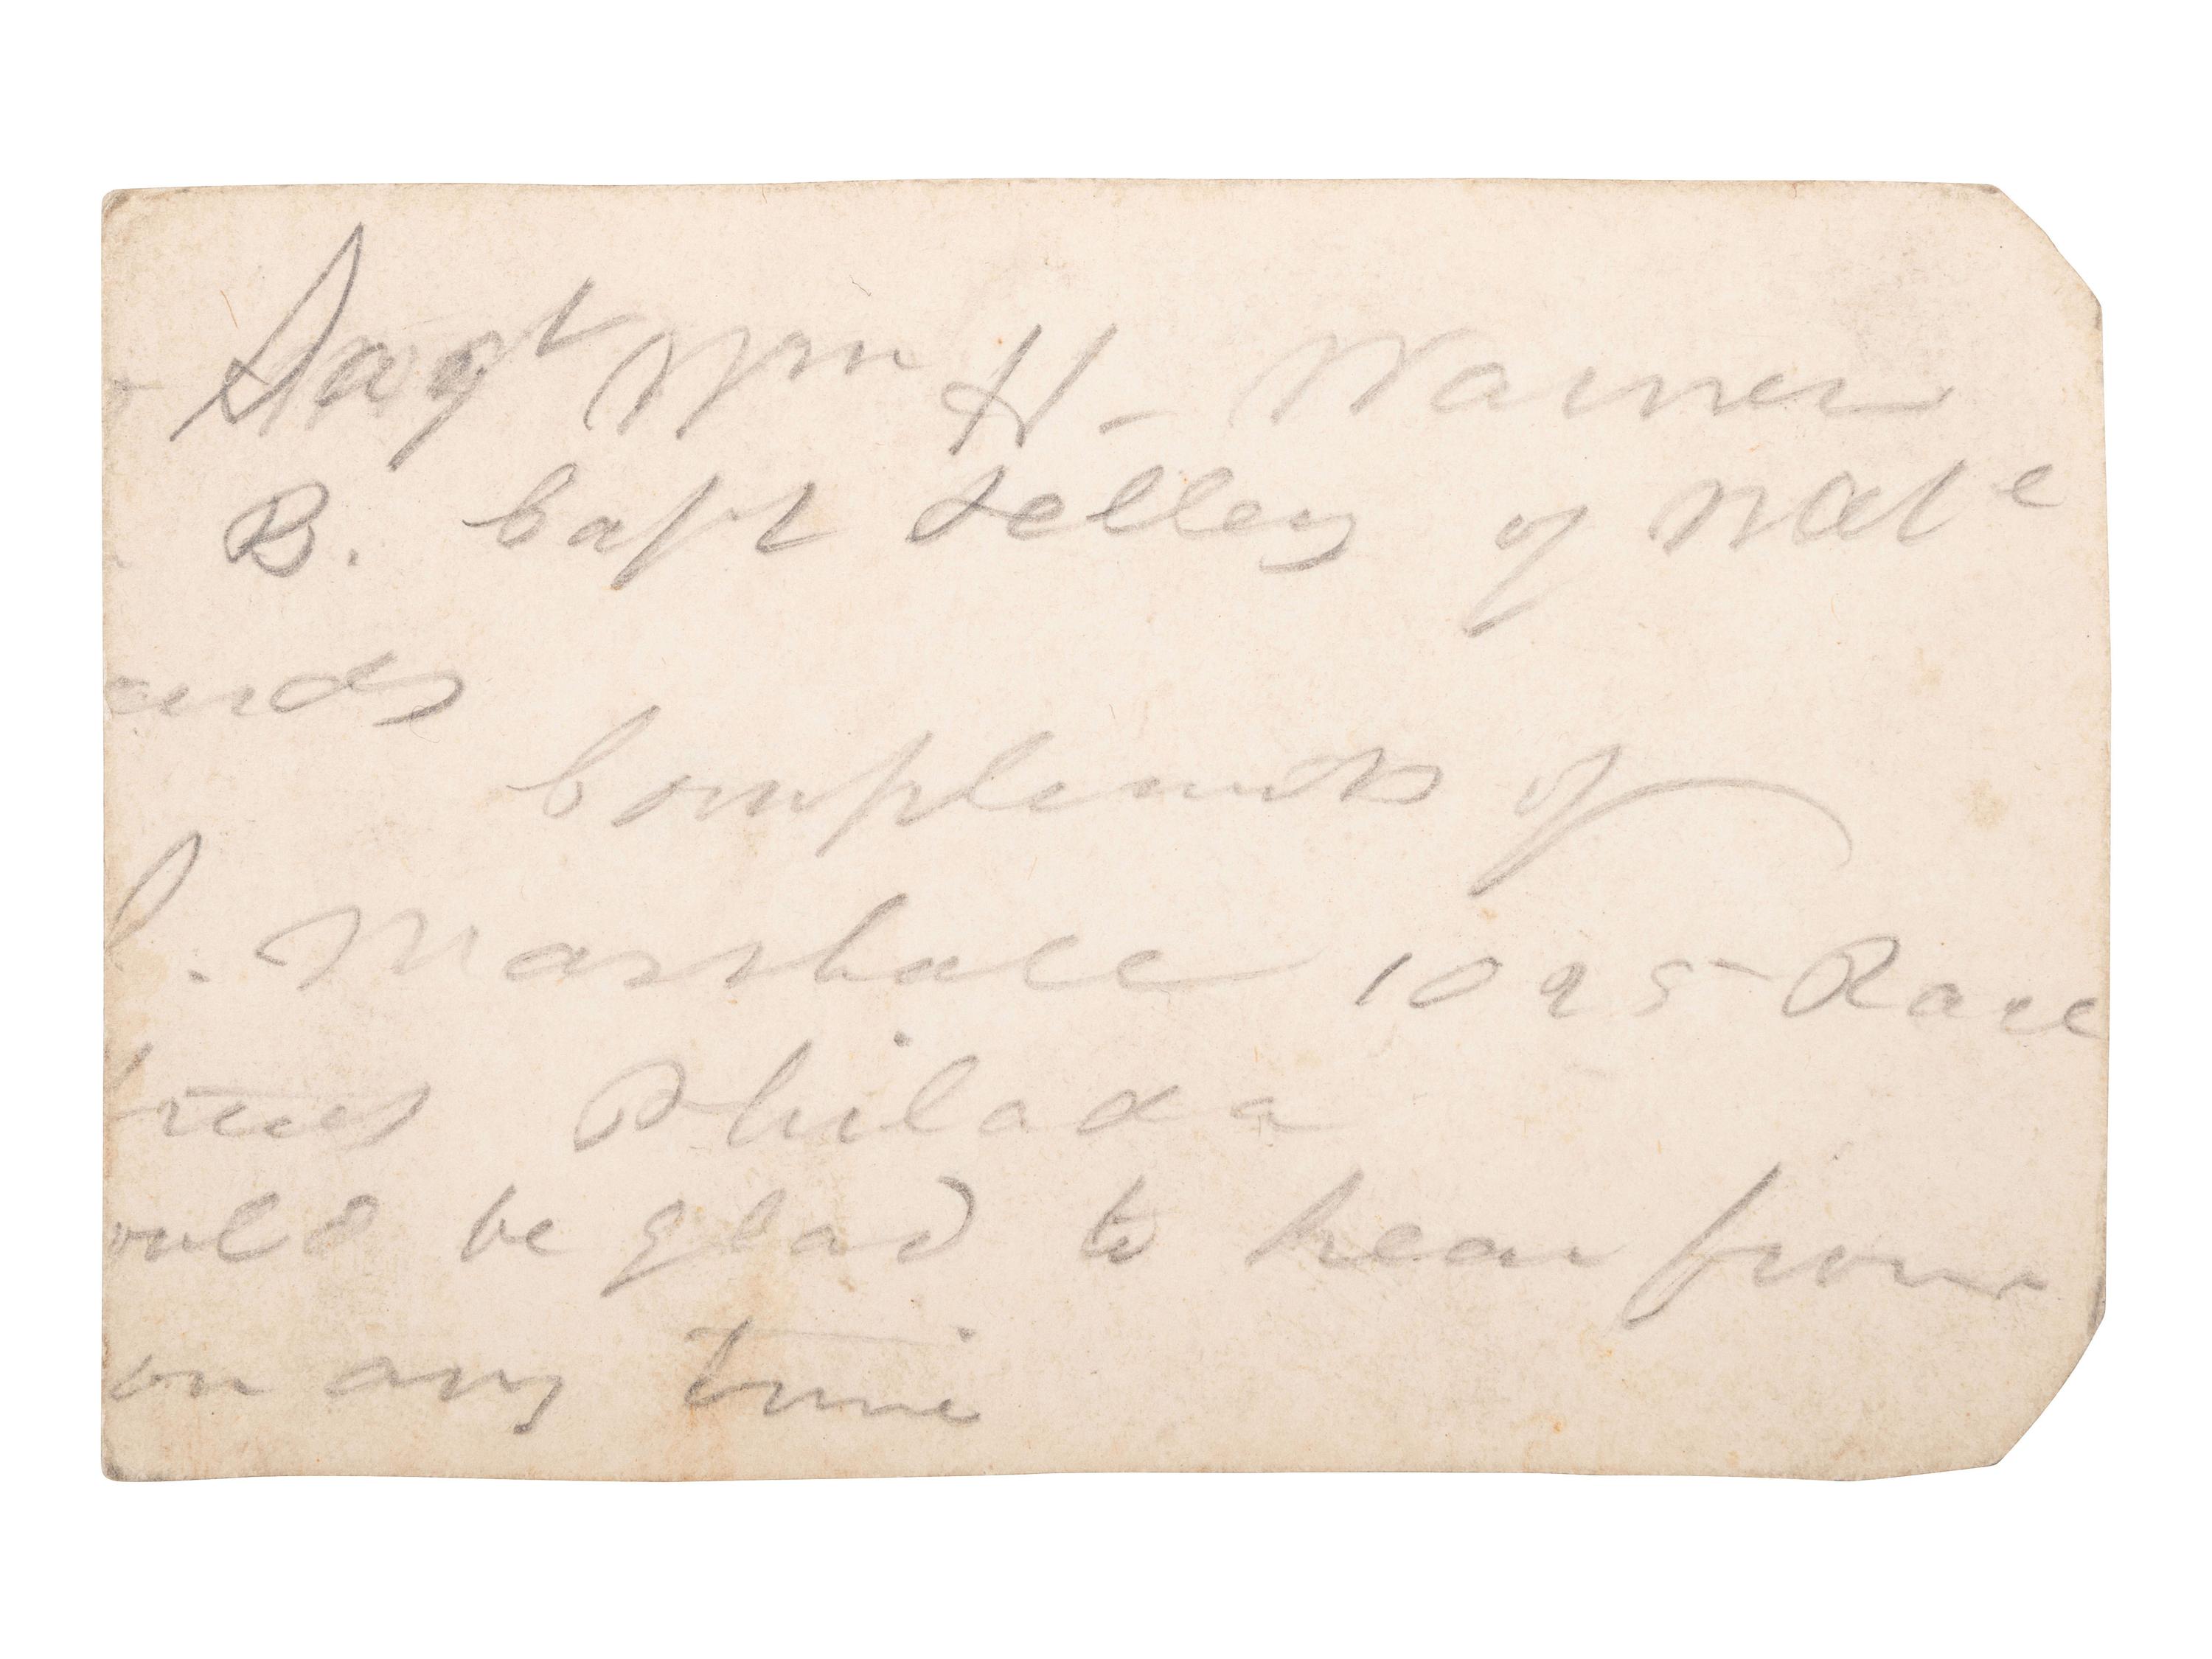 Sargt Wm H - Warner
B. Capt Selley of
ards
Complemets of
. Marshall 1025 Race
treet Philada
ould be glad to hear from
ou any time